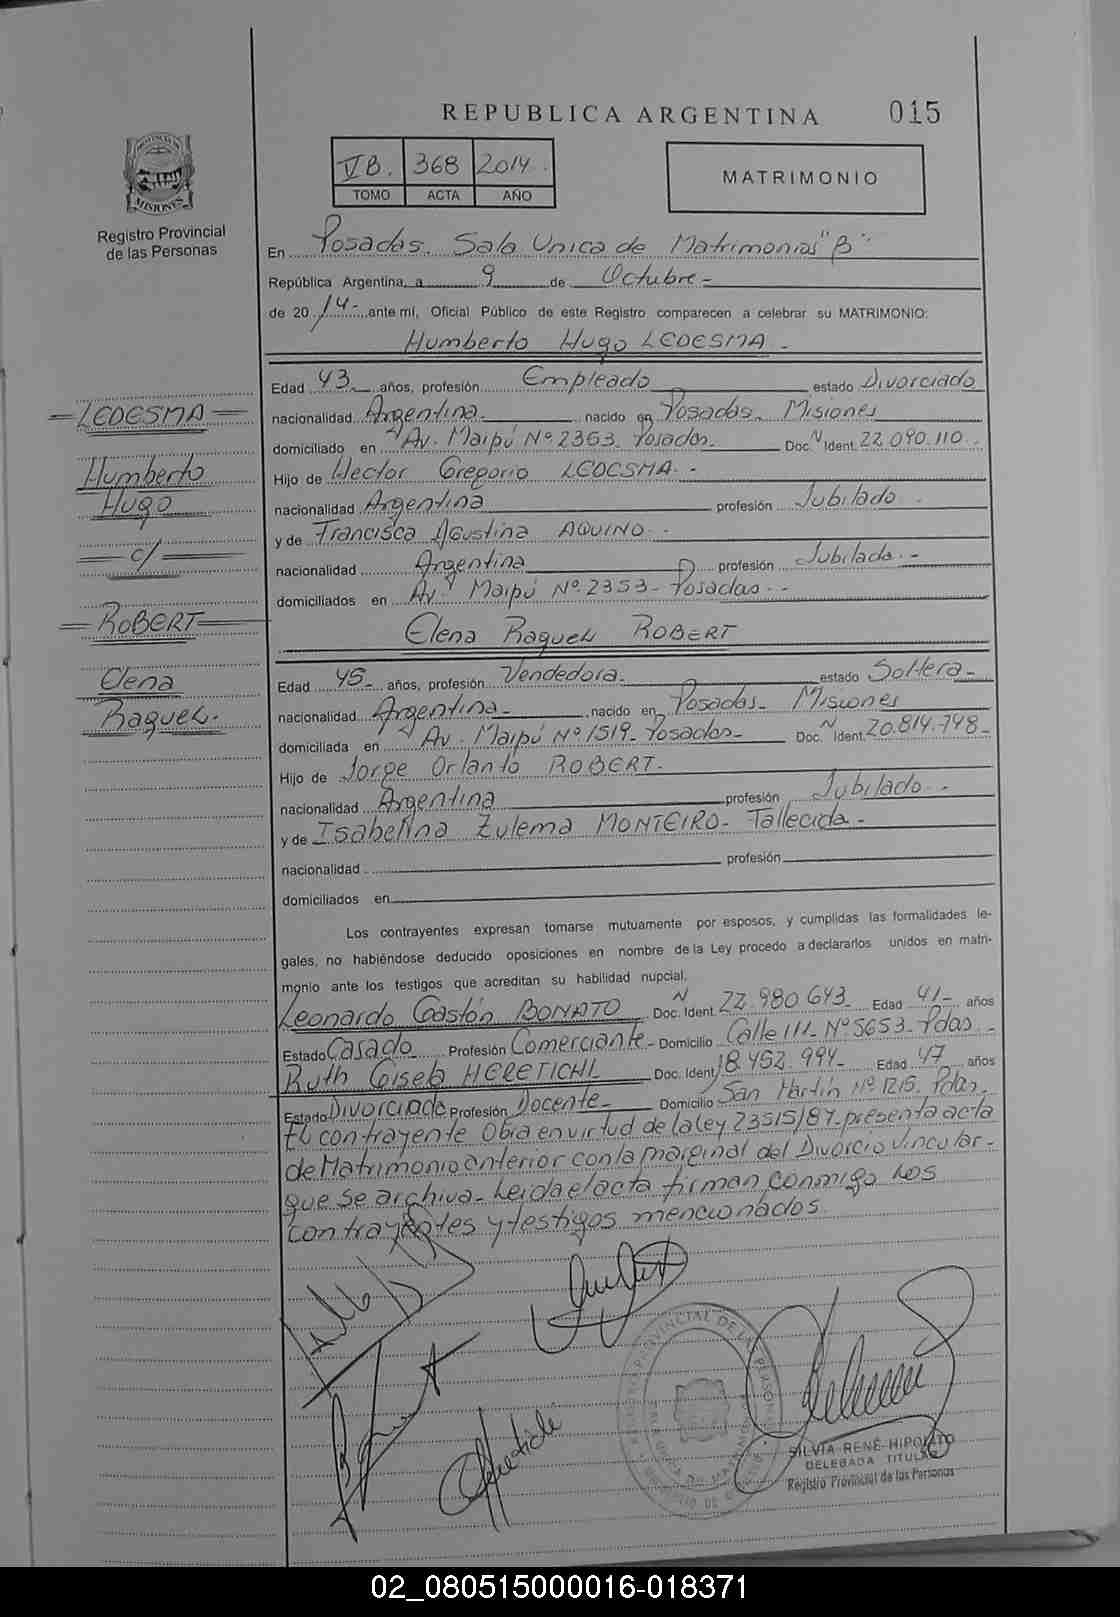 REPUBLICA ARGENTINA 015
VB. 368 2014.
TOMO ACTA AÑO
MATRIMONIO
PROVINCIA DE MISIONES
Registro Provincial
de las Personas
En Posadas. Sala Unica de Matrimonios "B"
República Argentina, a 9 de Octubre-
de 20 14- ante mí, Oficial Público de este Registro comparecen a celebrar su MATRIMONIO:
Humberto Hugo LEDESMA -
Edad 43 años, profesión Empleado estado Divorciado
nacionalidad Argentina. nacido en Posadas. Misiones
domiciliado en Av. Maipú Nº 2353. Posadas. Doc. N Ident. 22.090.110.
Hijo de Hector Gregorio LEDESMA. -
nacionalidad Argentina profesión Jubilado
y de Francisca Agustina AQUINO. -
nacionalidad Argentina profesión Jubilada. -
domiciliados en Av. Maipú Nº. 2353- Posadas - -
Elena Raquel ROBERT
Edad 45- años, profesión Vendedora. estado Soltera-
nacionalidad Argentina- nacido en Posadas- Misiones
domiciliada en Av. Maipú Nº 1519- Posadas- Doc. N Ident. 20.814.748-
Hijo de Jorge Orlanto ROBERT.
nacionalidad Argentina profesión Jubilado. -
y de Isabelina Zulema MONTEIRO- Fallecida -
nacionalidad profesión
domiciliados en
Los contrayentes expresan tomarse mutuamente por esposos, y cumplidas las formalidades le-
gales, no habiéndose deducido oposiciones en nombre de la Ley procedo a declararlos unidos en matri-
monio ante los testigos que acreditan su habilidad nupcial.
Leonardo Gastón BONATO Doc. N Ident. 22.980.643- Edad 41- años
Estado Casado Profesión Comerciante- Domicilio Calle 111- Nº 5653- Pdas -
Ruth Gisela HERETICHI Doc. Ident. 18.452.994- Edad 47 años
Estado Divorciada Profesión Docente- Domicilio San Martín Nº 1215. Pdas-
El contrayente Obra en virtud de la ley 23515/87- presenta acta
de Matrimonio anterior con la marginal del Divorcio Vincular-
que se archiva- Leida el acta firman conmigo los
contrayentes y testigos mencionados.
LEDESMA
Humberto
Hugo
c/
ROBERT
Elena
Raquel.
SILVIA RENÉ HIPOLITO
DELEGADA TITULAR
Registro Provincial de las Personas
02_080515000016-018371